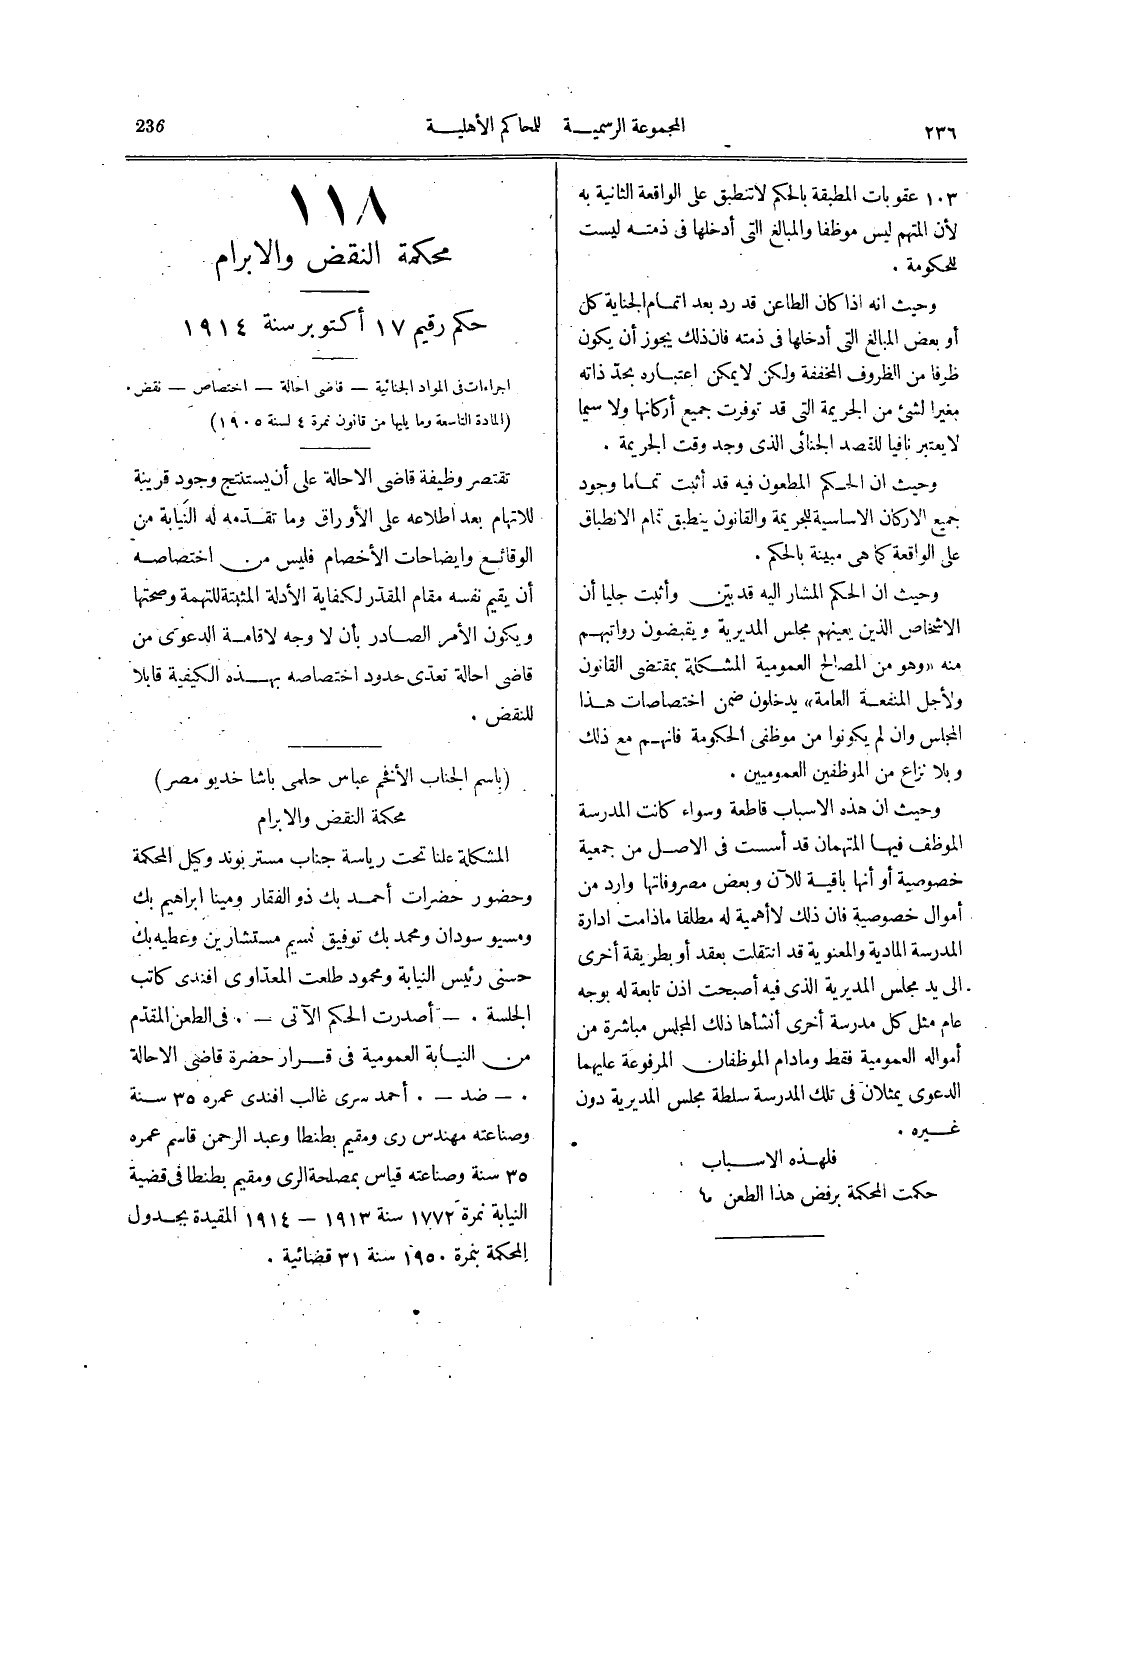 ٢٣٦
المجموعة الرسمية للمحاكم الأهلية
236
١٠٣ عقوبات المطبقة بالحكم لاتنطبق على الواقعة الثانية به
لأن المتهم ليس موظفا والمبالغ التى أدخلها فى ذمته ليست
للحكومة .
وحيث انه اذا كان الطاعن قد رد بعد اتمام الجناية كل
أو بعض المبالغ التى أدخلها فى ذمته فان ذلك يجوز أن يكون
ظرفا من الظروف المخففة ولكن لايمكن اعتباره بحدّ ذاته
مغيرا لشئ من الجريمة التى قد توفرت جميع أركانها ولا سيما
لا يعتبر نافيا للقصد الجنائى الذى وجد وقت الجريمة .
وحيث ان الحكم المطعون فيه قد أثبت تماما وجود
جميع الاركان الاساسية للجريمة والقانون ينطبق تمام الانطباق
على الواقعة كما هى مبينة بالحكم .
وحيث ان الحكم المشار اليه قد بيّن وأثبت جليا أن
الاشخاص الذين يعينهم مجلس المديرية ويقبضون رواتبهم
منه «وهو من المصالح العمومية المشكلة بمقتضى القانون
ولأجل المنفعة العامة» يدخلون ضمن اختصاصات هذا
المجلس وان لم يكونوا من موظفى الحكومة فانهم مع ذلك
وبلا نزاع من الموظفين العموميين .
وحيث ان هذه الاسباب قاطعة وسواء كانت المدرسة
الموظف فيها المتهمان قد أسست فى الاصل من جمعية
خصوصية أو أنها باقية للآن وبعض مصروفاتها وارد من
أموال خصوصية فان ذلك لاأهمية له مطلقا مادامت ادارة
المدرسة المادية والمعنوية قد انتقلت بعقد أو بطريقة أخرى
الى يد مجلس المديرية الذى فيه أصبحت اذن تابعة له بوجه
عام مثل كل مدرسة أخرى أنشأها ذلك المجلس مباشرة من
أمواله العمومية فقط ومادام الموظفان المرفوعة عليهما
الدعوى يمثلان فى تلك المدرسة سلطة مجلس المديرية دون
غيره .
فلهذه الاسباب
حكمت المحكمة برفض هذا الطعن
١١٨
محكمة النقض والابرام
حكم رقيم ١٧ أكتوبر سنة ١٩١٤
اجراءات فى المواد الجنائية — قاضى احالة — اختصاص — نقض .
(المادة التاسعة وما يليها من قانون نمرة ٤ لسنة ١٩٠٥)
تقتصر وظيفة قاضى الاحالة على أن يستنتج وجود قرينة
للاتهام بعد اطلاعه على الأوراق وما تقدّمه له النيابة من
الوقائع وايضاحات الأخصام فليس من اختصاصه
أن يقيم نفسه مقام المقدّر لكفاية الأدلة المثبتة للتهمة وصحتها
ويكون الأمر الصادر بأن لا وجه لاقامة الدعوى من
قاضى احالة تعدّى حدود اختصاصه بهذه الكيفية قابلا
للنقض .
(باسم الجناب الأفخم عباس حلمى باشا خديو مصر)
محكمة النقض والابرام
المشكلة علنا تحت رياسة جناب مستر بوند وكيل المحكمة
وحضور حضرات أحمد بك ذو الفقار ومينا ابراهيم بك
ومسيو سودان ومحمد بك توفيق نسيم مستشارين وعطيه بك
حسنى رئيس النيابة ومحمود طلعت المعداوى افندى كاتب
الجلسة . — أصدرت الحكم الآتى — . فى الطعن المقدّم
من النيابة العمومية فى قرار حضرة قاضى الاحالة
. — ضد — . أحمد سرى غالب افندى عمره ٣٥ سنة
وصناعته مهندس رى ومقيم بطنطا وعبد الرحمن قاسم عمره
٣٥ سنة وصناعته قياس بمصلحة الرى ومقيم بطنطا فى قضية
النيابة نمرة ١٧٧٢ سنة ١٩١٣ — ١٩١٤ المقيدة بجدول
المحكمة بنمرة ١٩٥٠ سنة ٣١ قضائية .